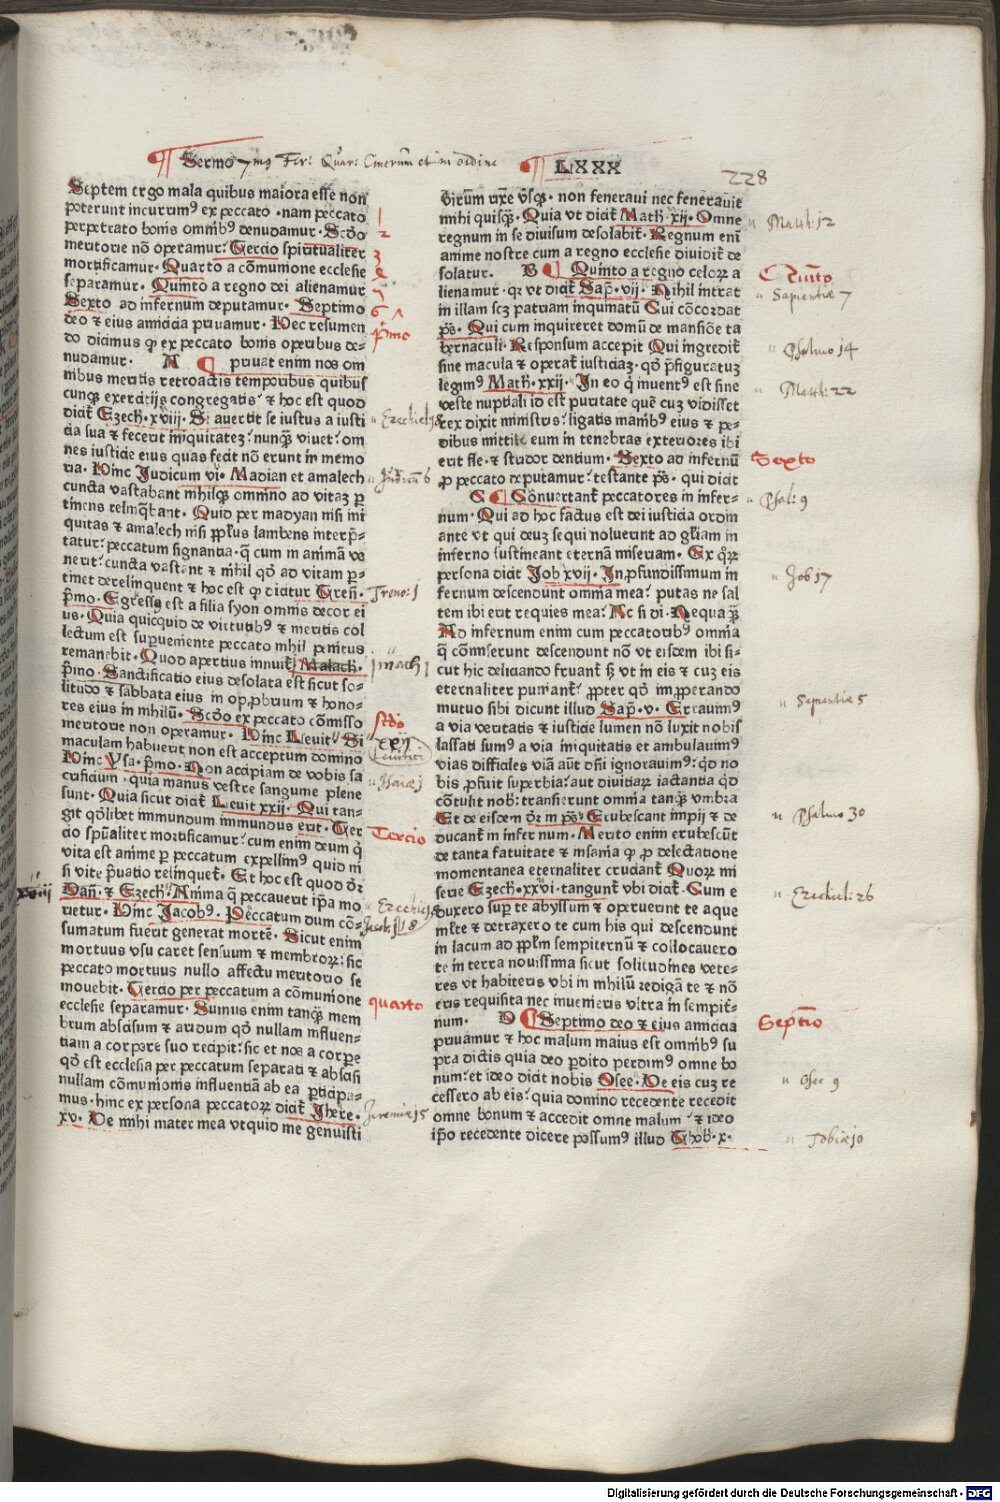 Sermo 7mꝯ Fer: Quar: Cinerum et in ordine LXXX
228
Septem ergo mala quibus maiora esse non
poterunt incurrimꝰ ex peccato · nam peccato
perpetrato bonis omnibꝰ denudamur · Scdo
meritorie nō operamur · Tercio spiritualiter
mortificamur · Quarto a cōmunione ecclesie
separamur · Quinto a regno dei alienamur
Sexto ad infernum deputamur · Septimo
deo et eius amicicia priuamur · Nec resumen
do dicimus ꝙ ex peccato bonis operibus de-
nudamur · A ¶ priuat enim nos om
nibus meritis retroactis temporibus quibus
cunqꝫ exercitijs congregatis · et hoc est quod
dicit Ezech · xviij · Si auertit se iustus a iusti
cia sua et fecerit iniquitatez · nunqꝫ viuet · om
nes iusticie eius quas fecit nō erunt in memo
ria · Hinc Judicum vi · Madian et amalech
cuncta vastabant nihilqꝫ omnino ad vitaꝫ ꝑ
tinens relinqbant · Quid per madyan nisi ini
quitas et amalech nisi pplus lambens interp̄-
tatur · peccatum signantia · q̄ cum in animā ve
nerit · cuncta vastant et nihil qd̄ ad vitam ꝑ-
tinet derelinquent et hoc est ꝙ dicitur Tren̄ ·
p̄mo · Egressꝰ est a filia syon omnis decor ei
us · Quia quicquid de virtutibꝰ et meritis col
lectum est superueniente peccato nihil penitus
remanebit · Quod apertius innuit Malach ·
p̄mo · Sanctificatio eius desolata est sicut so-
litudo et sabbata eius in opprobrium et hono-
res eius in nihilū · Scdo ex peccato cōmisso
meritorie non operamur · Hinc Leuit · Si
maculam habuerit non est acceptum domino
Hinc Ysa · p̄mo · Non accipiam de vobis sa
crificium · quia manus vestre sanguine plene
sunt · Quia sicut dicit Leuit xxij · Qui tan-
git qd̄libet immundum immundus erit · Ter
cio spūaliter mortificamur · cum enim deum q̄
vita est anime ꝑ peccatum expellimꝰ quid ni
si vite p̄uatio relinquet · Et hoc est quod dr̄
Dan̄ · et Ezech · Anima q̄ peccauerit ip̄a mo
rietur · Hinc Jacobꝰ · Peccatum dum cō-
sumatum fuerit generat mortē · Sicut enim
mortuus vsu caret sensuum et membroꝝ · sic
peccato mortuus nullo affectu meritorio se
mouebit · Tercio per peccatum a cōmunione
ecclesie separamur · Sumus enim tanqꝫ mem
brum abscisum et aridum qd̄ nullam influen-
tiam a corpore suo recipit · sic et nos a corpe
qd̄ est ecclesia per peccatum separati et abscisi
nullam cōmunionis influentiā ab ea ꝑticipa-
mus · hinc ex persona peccatoꝝ dicit Jhere ·
xv · Ve mihi mater mea vtquid me genuisti
1
2
3
4
5
6
7
p̄mo
Ezechiel 18
Judicū 6
Treno: 1
mach 1
scdo
xxij
Leuitici
Isaiæ 1
Tercio
xviij
Ezechiel 18
Jacob: 1
quarto
Jeremiæ 15
virum rixe vsqꝫ · non feneraui nec fenerauit
mihi quisqꝫ · Quia vt dicit Math · xij · Omne
regnum in se diuisum desolabit · Regnum eni
anime nostre cum a regno ecclesie diuidit de
solatur · B ¶ Quinto a regno celoꝝ a
lienamur · qꝛ vt dicit Sap · vij · Nihil intrat
in illam scꝫ patriam inquinatū Cui cōcordat
ps · Qui cum inquireret domū de mansiōe ta
bernaculi · Responsum accepit Qui ingredit
sine macula et operat iusticiaꝫ · qd̄ p̄figuratuꝫ
legimꝰ Math · xxij · In eo q̄ inuent est sine
veste nuptiali id est puritate quē cuꝫ vidisset
rex dixit ministris · ligatis manibꝰ eius et pe-
dibus mittite eum in tenebras exteriores ibi
erit fle · et stridor dentium · Sexto ad infernū
ꝓ peccato deputamur · testante ps · qui dicit
C ¶ Conuertant peccatores in infer-
num · Qui ad hoc factus est dei iusticia ordin
ante vt qui deuꝫ sequi noluerint ad gliam in
inferno sustineant eternā miseriam · Ex quoꝝ
persona dicit Job xvij · In ꝓfundissimum in
fernum descendunt omnia mea · putas ne sal
tem ibi erit requies mea · Ac si di · Nequaqꝫ
Ad infernum enim cum peccatoribꝰ omnia
q̄ cōmiserunt descendunt nō vt eisdem ibi si-
cut hic delicando fruant sꝫ vt in eis et cuꝫ eis
eternaliter puniant · ꝓpter qd̄ imꝓperando
mutuo sibi dicunt illud Sap · v · Errauimꝰ
a via veritatis et iusticie lumen nō luxit nobis
lassati sumꝰ a via iniquitatis et ambulauimꝰ
vias difficiles viā aūt dn̄i ignorauimꝰ · qd̄ no
bis ꝓfuit superbia · aut diuitiaꝝ iactantia qd̄
cōtulit nob · transierunt omnia tanqꝫ vmbra
Et de eisdem dr̄ in ps · Erubescant impij et de
ducant in infernum · Merito enim erubescūt
de tanta fatuitate et insania ꝙ ꝓ delectatione
momentanea eternaliter cruciant Quoꝝ mi
serie Ezech · xxvi · tangunt vbi dicit · Cum e
duxero super te abyssum et operuerint te aque
mlte et detraxero te cum his qui descendunt
in lacum ad pplm sempiternū et collocauero
te in terra nouissima sicut solitudines vete-
res vt habiteris vbi in nihilū redigā te et nō
eris requisita nec inuenieris vltra in sempit-
num · D ¶ Septimo deo et eius amicicia
priuamur et hoc malum maius est omnibꝰ su
pra dictis quia deo perdito perdimꝰ omne bo
num · et ideo dicit nobis Osee · Ve eis cuꝫ re
cessero ab eis · quia domino recedente recedit
omne bonum et accedit omne malum · et ideo
ip̄o recedente dicere possumꝰ illud Thob · x ·
Matth: 12
Quinto
Sapientiæ 7
Psalmo 14
Matth: 22
Sexto
Psal: 9
Job 17
Sapientiæ 5
Psalmo 30
Ezechiel: 26
Septīo
Osee 9
Tobiæ 10
Digitalisierung gefördert durch die Deutsche Forschungsgemeinschaft - DFG